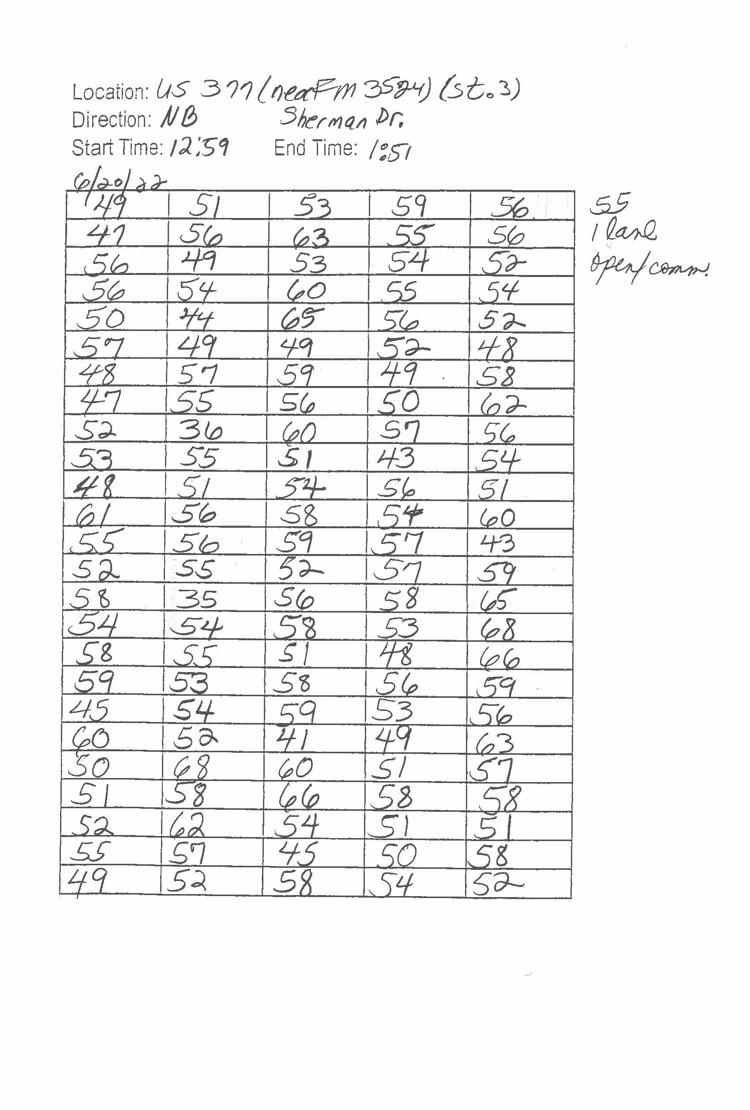 Location: US 377 (near FM 3524) (St. 3)
Direction: NB Sherman Dr.
Start Time: 12:59 End Time: 1:51
6/20/22
49 51 53 59 56 55
47 56 63 55 56 1 lane
56 49 53 54 52 open/comm.
56 54 60 55 54
50 44 65 56 52
57 49 49 52 48
48 57 59 49 58
47 55 56 50 62
52 36 60 57 56
53 55 51 43 54
48 51 54 56 51
61 56 58 54 60
55 56 59 57 43
52 55 52 57 59
58 35 56 58 65
54 54 58 53 68
58 55 51 48 66
59 53 58 56 59
45 54 59 53 56
60 52 41 49 63
50 68 60 51 57
51 58 66 58 58
52 62 54 51 51
55 57 45 50 58
49 52 58 54 52